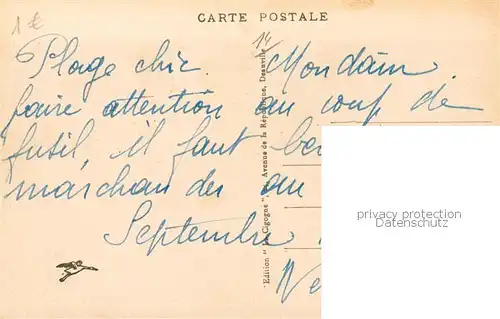 1 €
CARTE POSTALE
14
Plage chic. Mondain.
faire attention au coup de
fusil, il faut
marchander au
Septembre
Edition "La Cigogne" Avenue de la République, Deauville
privacy protection
Datenschutz